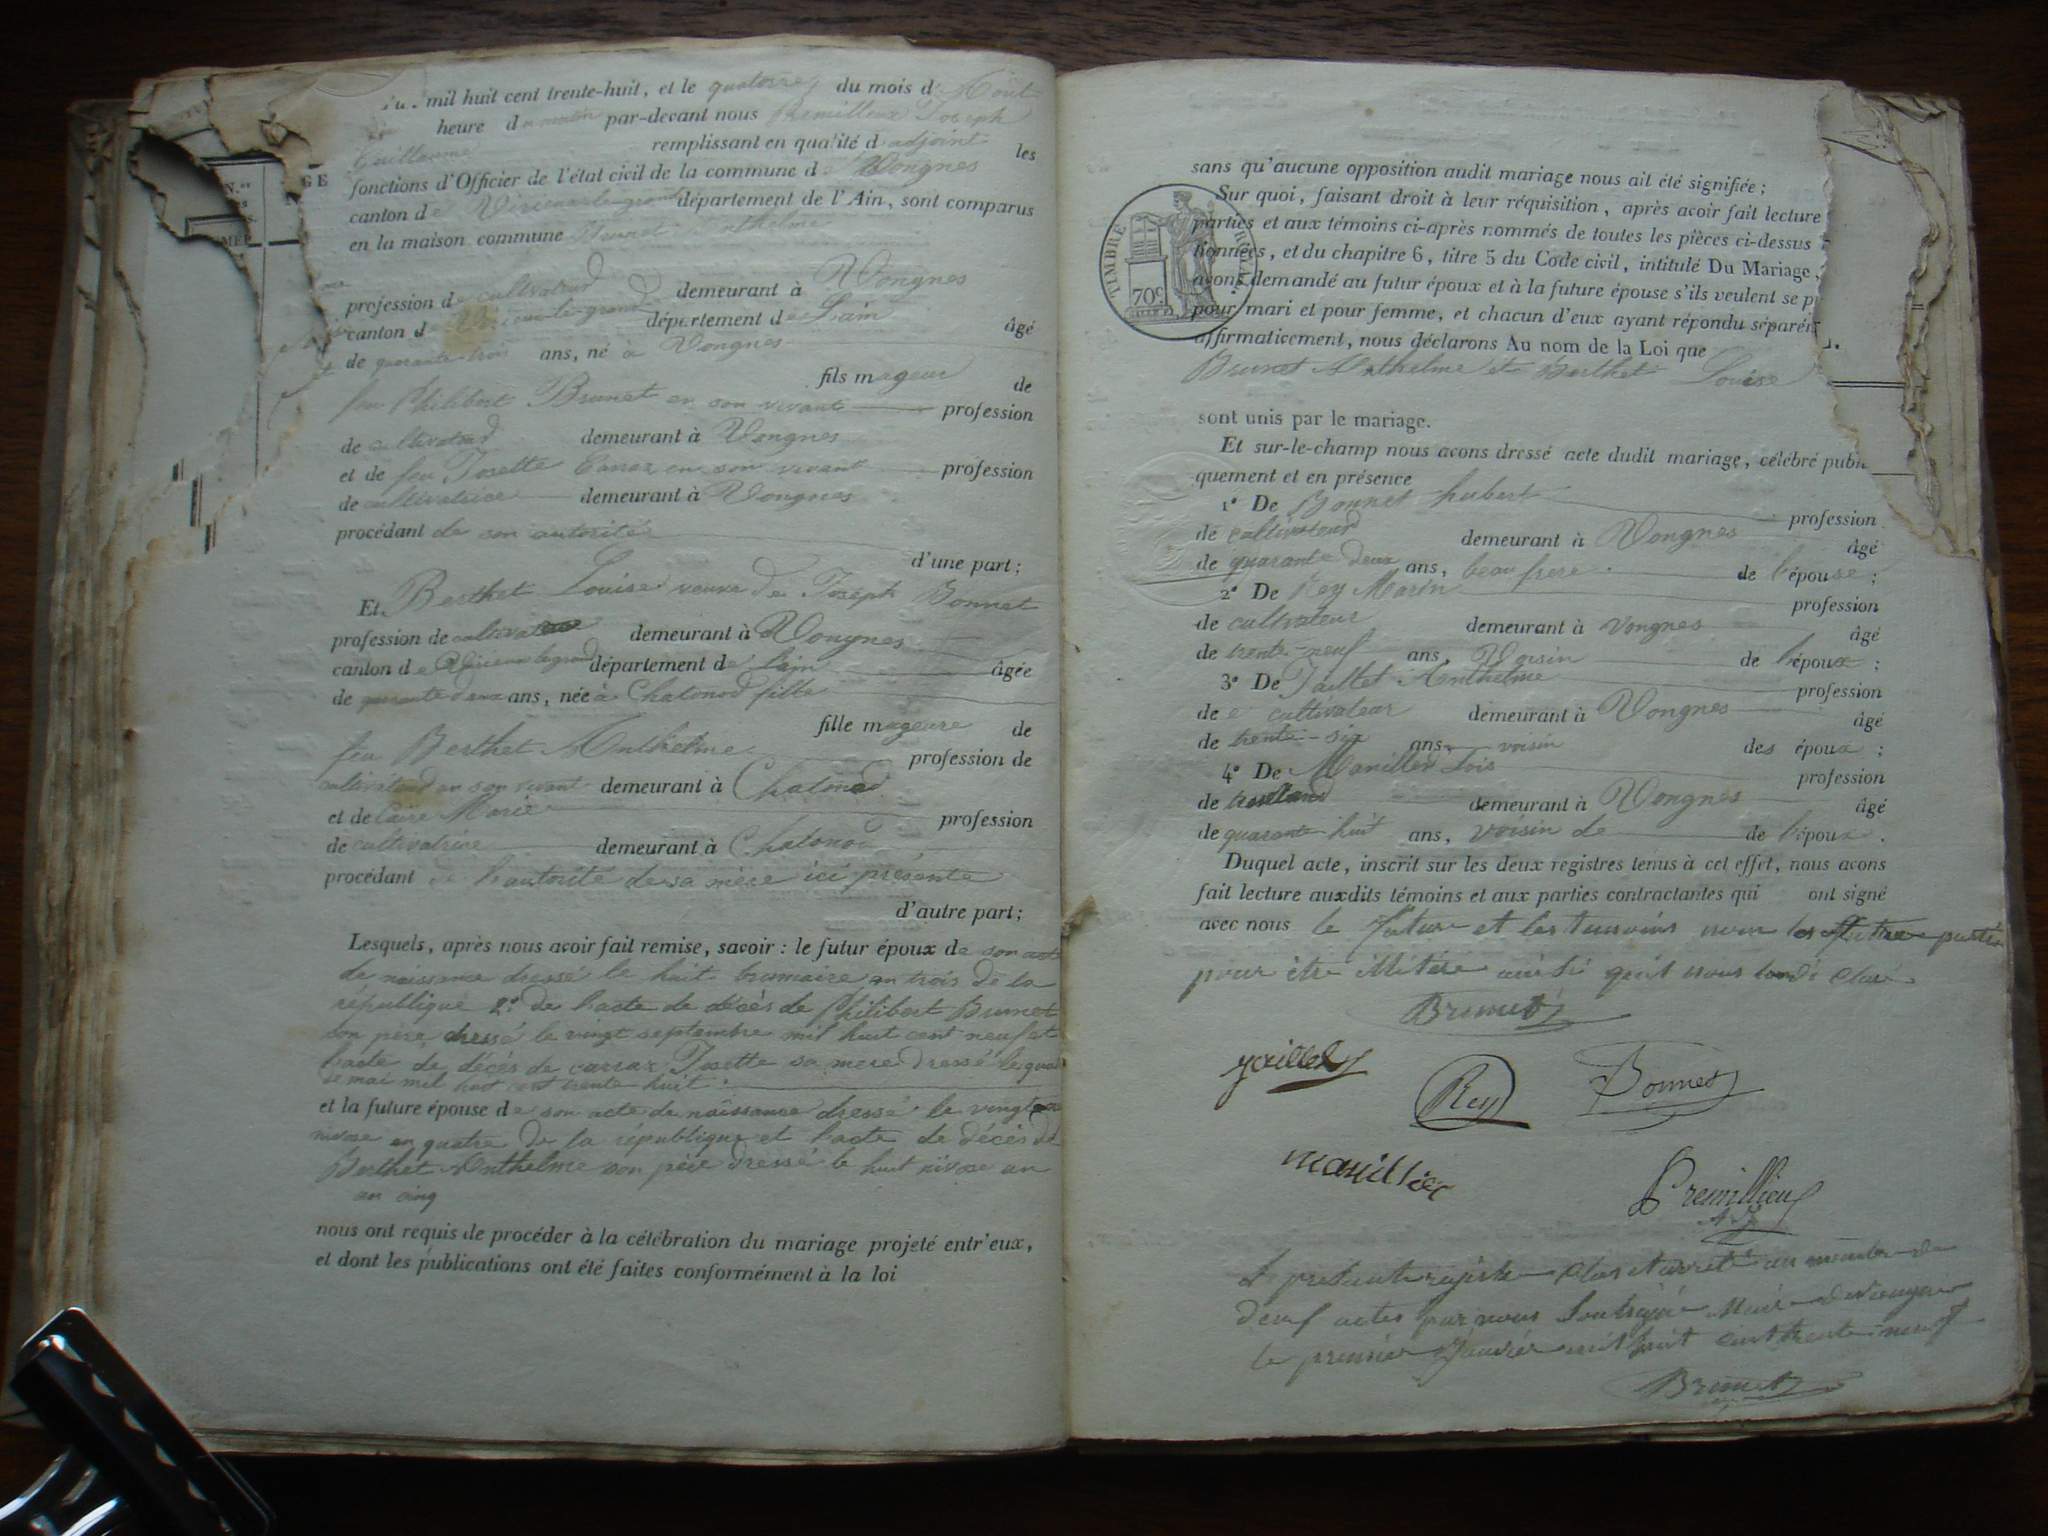 mil huit cent trente-huit, et le quatorze du mois d'Août
heure du matin par-devant nous Premillieux Joseph
Guillaume remplissant en qualité d'adjoint les
fonctions d'Officier de l'état civil de la commune de Vongnes
canton de Virieu-le-grand département de l'Ain, sont comparus
en la maison commune Brunet Anthelme
profession de cultivateur demeurant à Vongnes
canton de Virieu-le-grand département de Lain âgé
de quarante trois ans, né à Vongnes
fils mageur de
feu Philibert Brunet en son vivant profession
de cultivateur demeurant à Vongnes
et de feu Josette Carraz en son vivant profession
de cultivatrice demeurant à Vongnes
procédant de son autorité
d'une part;
Et Berthet Louise veuve de Joseph Bonnet
profession de demeurant à Vongnes
canton de Virieu legrand département de Lain âgée
de quarante deux ans, née à Chatonod fille
fille mageure de
feu Berthet Anthelme profession de
cultivateur en son vivant demeurant à Chatonod
et de Caire Marie profession
de cultivatrice demeurant à Chatonod
procédant de l'autorité de sa mère ici présente
d'autre part;
Lesquels, après nous avoir fait remise, savoir: le futur époux de son acte
de naissance dressé le huit brumaire an trois de la
république 2° de l'acte de décès de Philibert Brunet
son père dressé le vingt septembre mil huit cent neuf et
l'acte de décès de carraz Josette sa mere dressé le
de mai mil huit cent trente huit
et la future épouse de son acte de naissance dressé le
nivose an quatre de la république et l'acte de décès de
Berthet Anthelme son père dressé le huit nivose an
an cinq
nous ont requis de procéder à la célébration du mariage projeté entr'eux,
et dont les publications ont été faites conformément à la loi
sans qu'aucune opposition audit mariage nous ait été signifiée;
Sur quoi, faisant droit à leur réquisition, après avoir fait lecture
parties et aux témoins ci-après nommés de toutes les pièces ci-dessus
tionnées, et du chapitre 6, titre 5 du Code civil, intitulé Du Mariage,
avons demandé au futur époux et à la future épouse s'ils veulent se
pour mari et pour femme, et chacun d'eux ayant répondu
affirmativement, nous déclarons Au nom de la Loi que
Brunet Anthelme et Berthet Louise
TIMBRE ROYAL
70c
sont unis par le mariage.
Et sur-le-champ nous avons dressé acte dudit mariage, célébré publi
quement et en présence
1° De Bonnet hubert profession
de cultivateur demeurant à Vongnes âgé
de quarante deux ans, beau frere de l'épouse;
2° De Rey Marin profession
de cultivateur demeurant à vongnes âgé
de trente-neuf ans, Voisin de l'époux;
3° De Jaillet Anthelme profession
de cultivateur demeurant à Vongnes âgé
de trente-six ans voisin des époux;
4° De Manillier Lois profession
de demeurant à Vongnes âgé
de quarante-huit ans, voisin de de l'époux.
Duquel acte, inscrit sur les deux registres tenus à cet effet, nous avons
fait lecture auxdits témoins et aux parties contractantes qui ont signé
avec nous le futur et les temoins non
pour être illitéré ainsi qu'il nous
Brunet
Rey
Bonnet
manillier
Premillieux
Adj
Le présent registre Clos et arreté au nombre de
actes par nous Soussigné Maire de Vongnes
le premier Janvier mil huit cent trente-neuf
Brunet